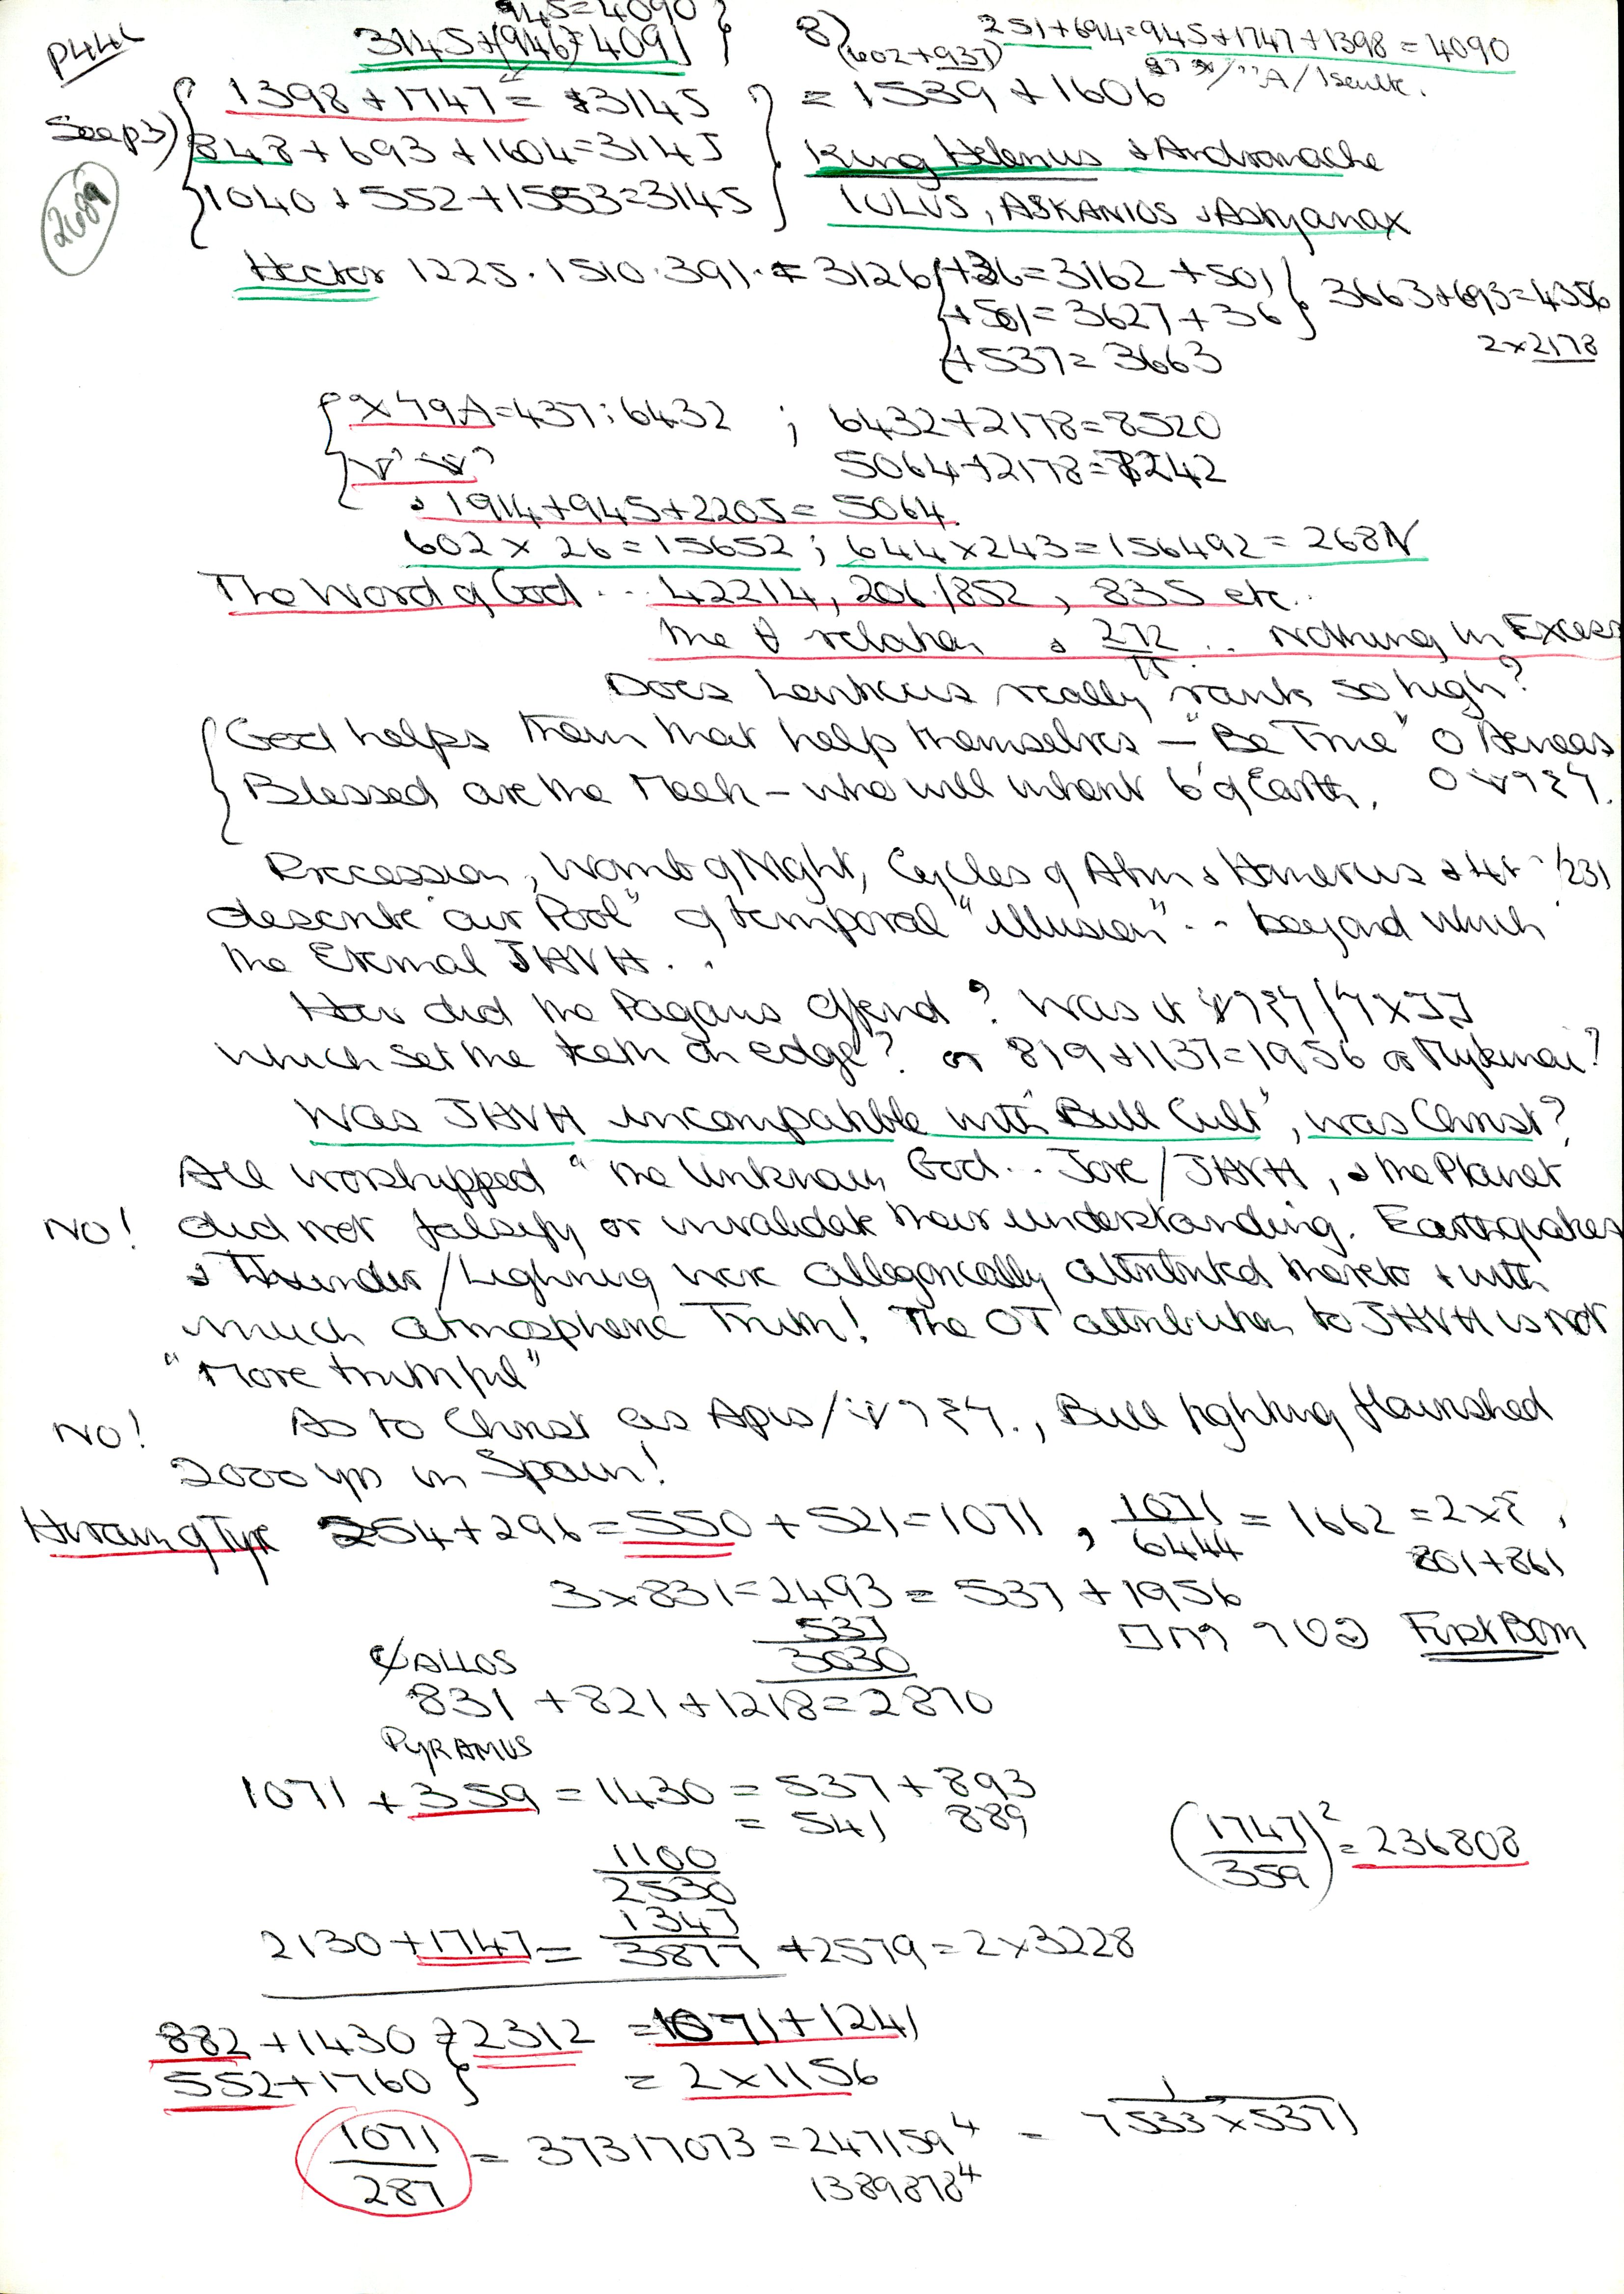 P442
945=4090
3145+(946)=4091 }
8)
(602+937)
251+694=945+1747+1398=4090
See p3)
1398+1747= 3145 } = 1539+1606
848+693+1604=3145 King Helenus & Andromache
1040+552+1553=3145 IULUS, ASKANIOS & Astyanax
2689
Hector 1225.1510.391. = 3126 {+36=3162+501 } 3663+693=4356
+501=3627+36 2×2178
+537=3663
=437:6432 ; 6432+2178=8520
5064+2178=7242
& 1914+945+2205=5064
602×26=15652; 644×243=156492=268N
The Word of God ... 42214, 206/852, 835 etc..
The θ relation & 272/π .. Nothing in Excess
Does really rank so high?
{ God helps them that help themselves – "Be True" O Aeneas
Blessed are the Meek – who will inherit Earth, O
Precession, Womb of Night, Cycles of & Homerus & /231
describe "our Pool" of temporal "illusion" .. beyond which
the Eternal JHVH ..
How did the Pagans offend? Was it
which set the teeth on edge? or 819+1137=1956 or Mykenai?
Was JHVH incompatible with "Bull Cult", was Christ?
All worshipped "the Unknown God... Jove/JHVH, & the Planet
No! did not falsify or invalidate their understanding. Earthquakes
& Thunder/Lightning were allegorically attributed thereto & with
much atmospheric Truth! The OT attribution to JHVH is not
"More truthful"
No! As to Christ as Apis/ , Bull fighting flourished
2000 yrs in Spain!
Hiram of Tyre 254+296=550+521=1071, 1071/6444 = 1662 = 2×?,
801+861
3×831=2493 = 537+1956
537
3030
First Born
C/GALLOS
831+821+1218=2870
PYRAMUS
1071+359=1430=537+893
= 541 889
1100
2530
(1747/359)²=236808
1347
2130+1747= 3877 +2579=2×3228
882+1430 } =2312 =1071+1241
552+1760 = 2×1156
1071/287 = 37317073=247159⁴ = 1/7533×5371
1389878⁴